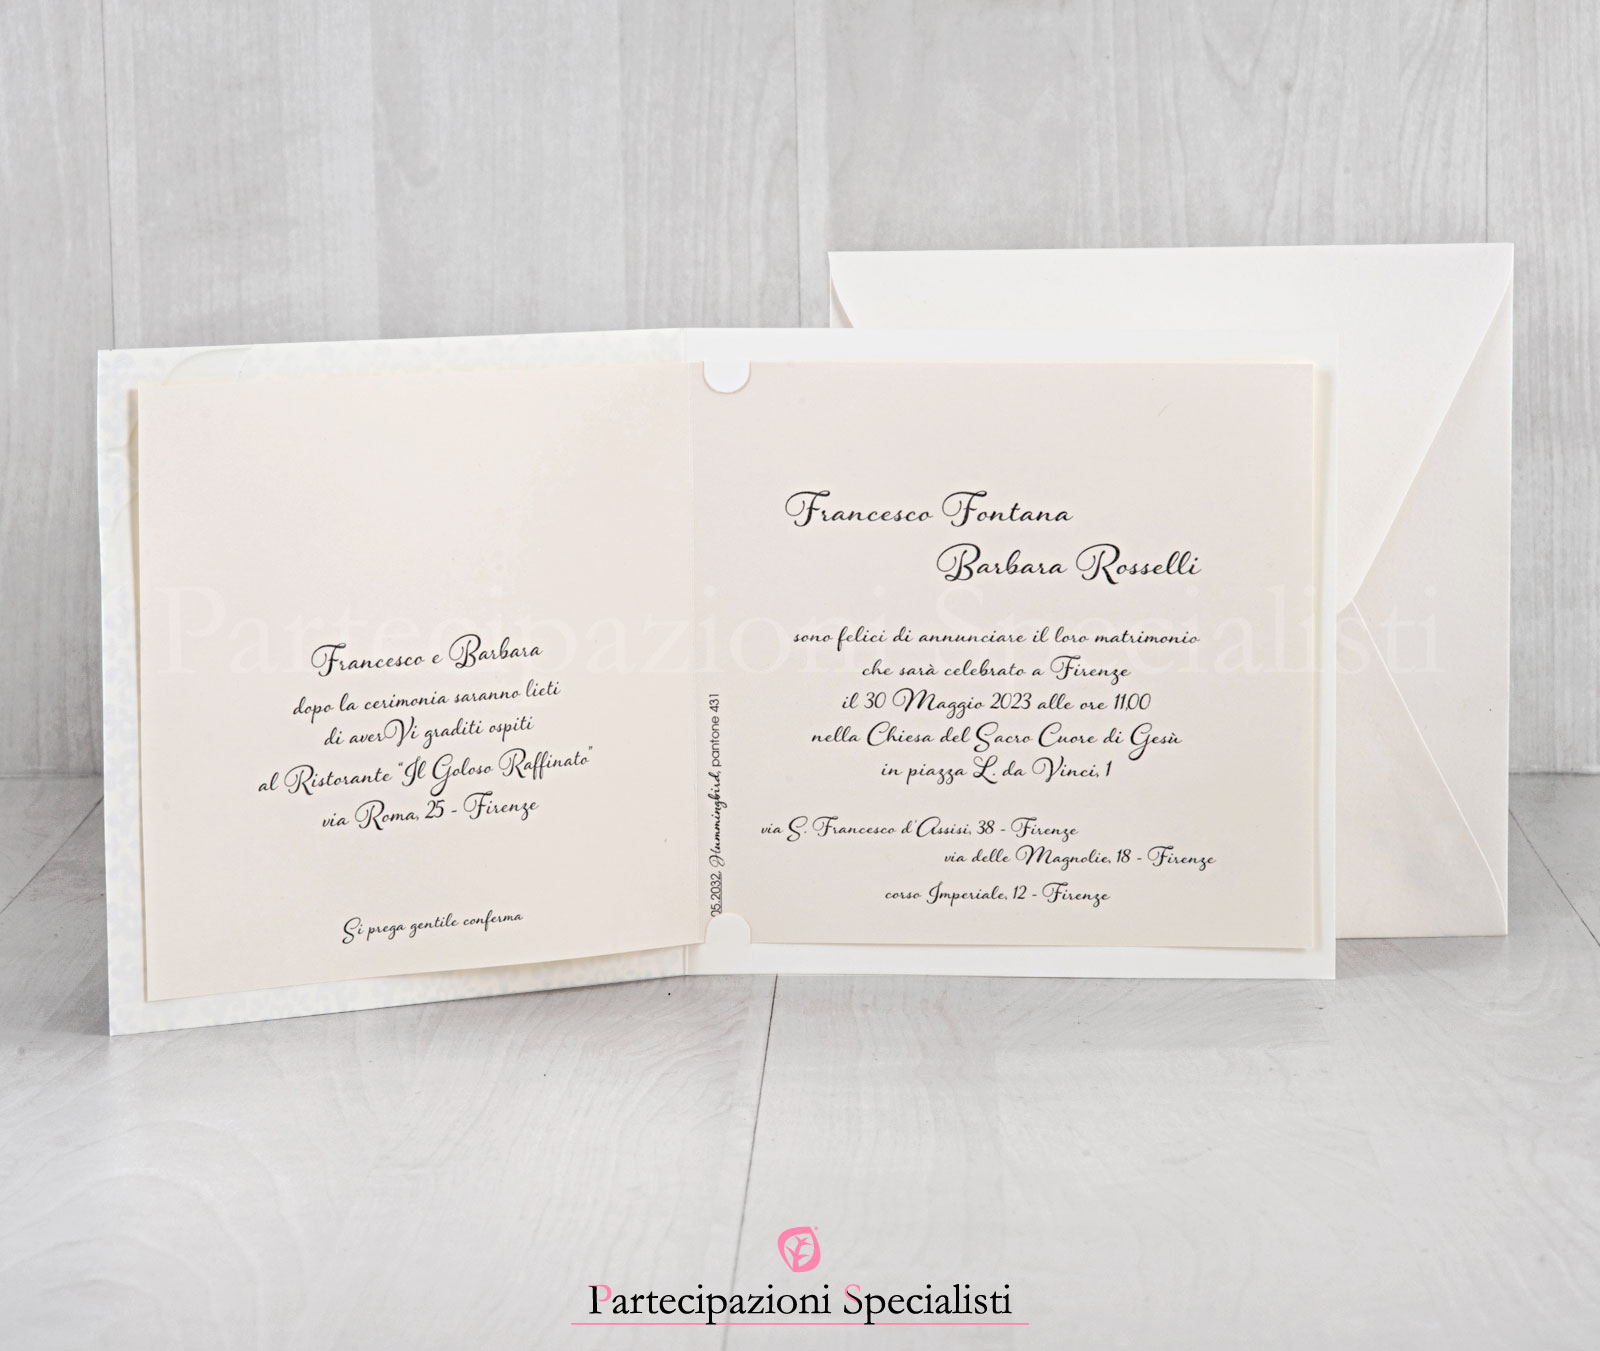 Francesco e Barbara
dopo la cerimonia saranno lieti
di averVi graditi ospiti
al Ristorante "Il Goloso Raffinato"
via Roma, 25 - Firenze
Si prega gentile conferma
05.2032, Hummingbird, pantone 431
Francesco Fontana
Barbara Rosselli
sono felici di annunciare il loro matrimonio
che sarà celebrato a Firenze
il 30 Maggio 2023 alle ore 11,00
nella Chiesa del Sacro Cuore di Gesù
in piazza L. da Vinci, 1
via S. Francesco d'Assisi, 38 - Firenze
via delle Magnolie, 18 - Firenze
corso Imperiale, 12 - Firenze
Partecipazioni Specialisti
Partecipazioni Specialisti